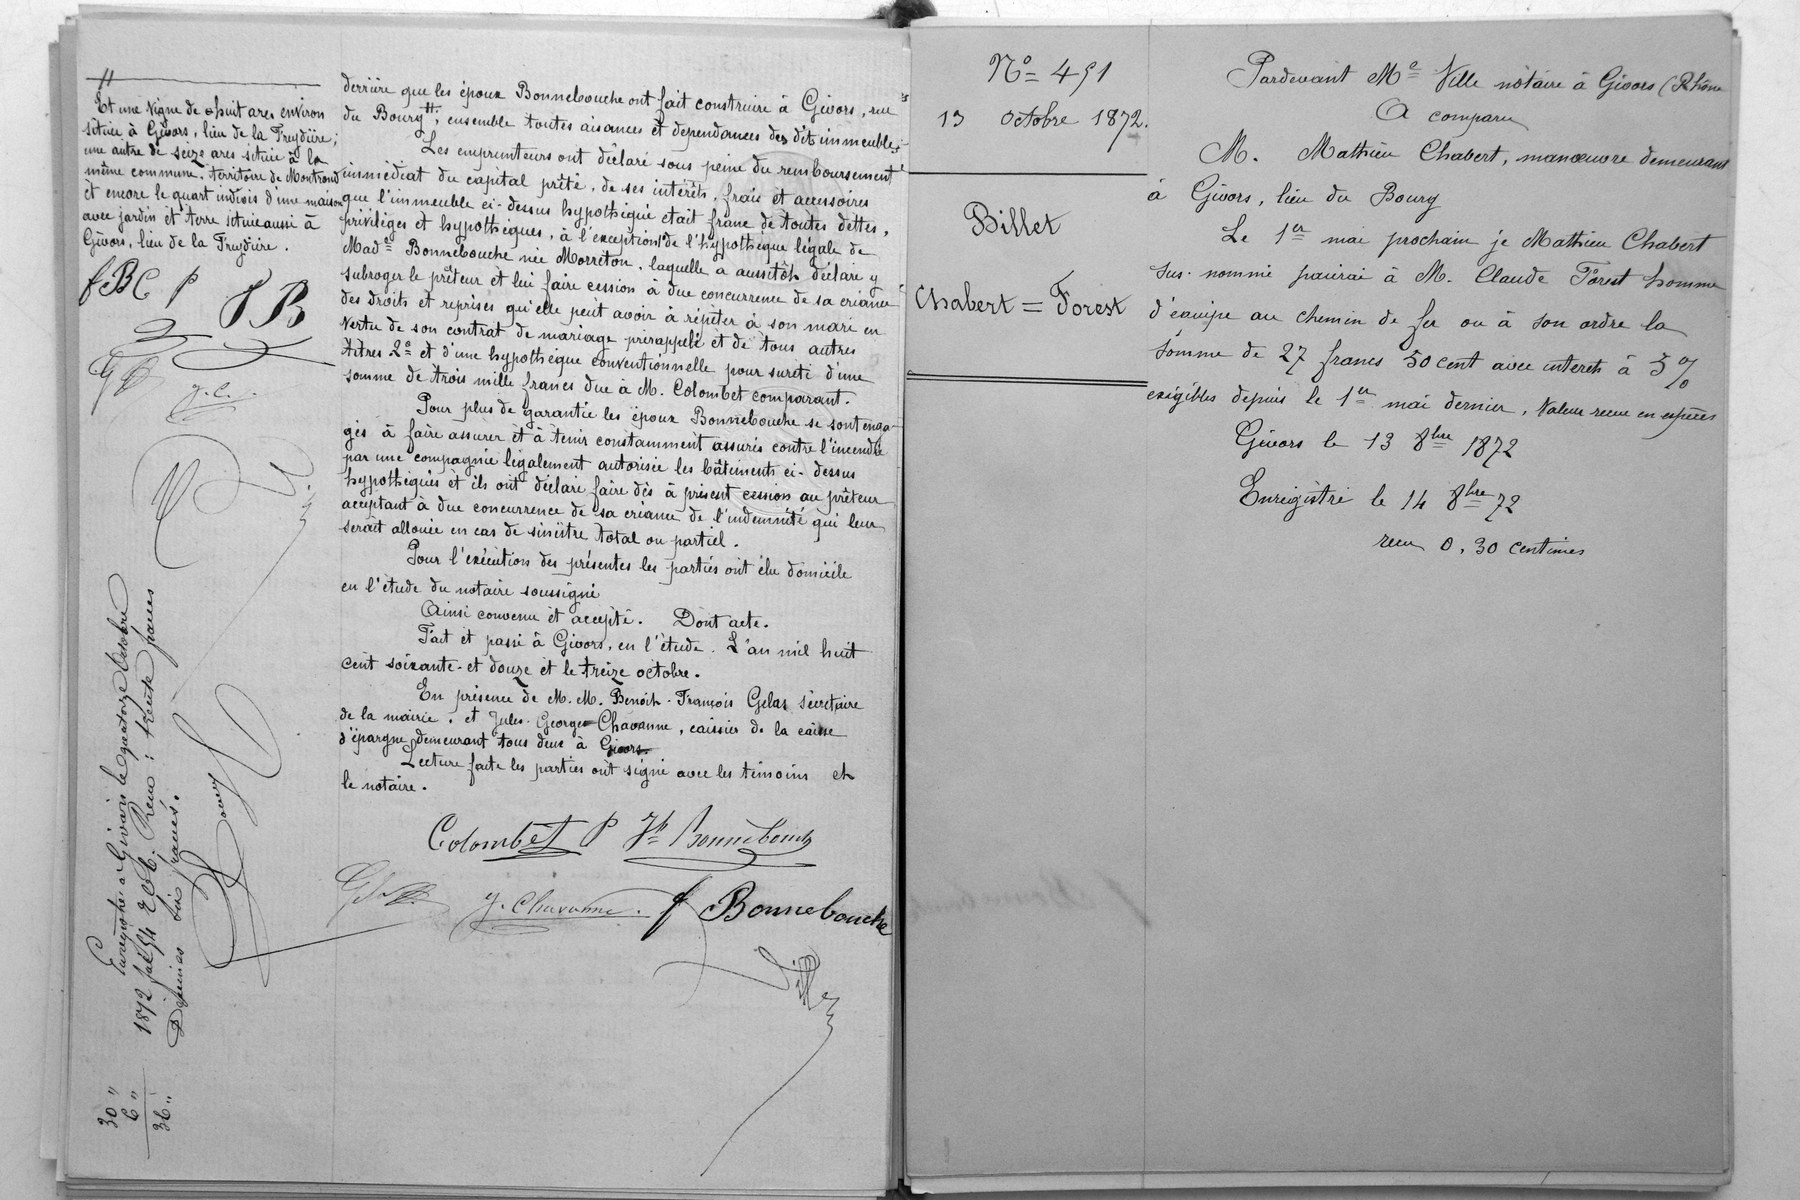 Et une vigne de huit ares environ
située à Givors, lieu de la Freydière ;
une autre de seize ares située à la
même commune, territoire de Montrond
et encore le quart indivis d'une maison
avec jardin et terre située aussi à
Givors, lieu de la Freydière.
fBC P JB
J. C.
Enregistré à Givors le quatorze octobre
1872 fol 54 Recu : trente francs
Décimes six francs.
30 "
6 "
36 "
derrière que les époux Bonnebouche ont fait construire à Givors, rue
du Bourg #, ensemble toutes aisances et dépendances des dits immeubles
Les emprunteurs ont déclaré sous peine du remboursement
immédiat du capital prêté, de ses intérêts, frais et accessoires
que l'immeuble ci-dessus hypothéqué était franc de toutes dettes,
privilèges et hypothèques, à l'exception 1° de l'hypothèque légale de
Made Bonnebouche née Morreton, laquelle a aussitôt déclaré y
subroger le prêteur et lui faire cession à due concurrence de sa créance
des droits et reprises qu'elle peut avoir à répéter à son mari en
vertu de son contrat de mariage prérappelé et de tous autres
titres 2° et d'une hypothèque conventionnelle pour sureté d'une
somme de trois mille francs due à M. Colombet comparant.
Pour plus de garantie les époux Bonnebouche se sont enga-
gés à faire assurer et à tenir constamment assurés contre l'incendie
par une compagnie légalement autorisée les bâtiments ci-dessus
hypothéqués et ils ont déclaré faire dès à présent cession au prêteur
acceptant à due concurrence de sa créance de l'indemnité qui leur
serait allouée en cas de sinistre total ou partiel.
Pour l'exécution des présentes les parties ont élu domicile
en l'étude du notaire soussigné
Ainsi convenu et accepté. Dont acte.
Fait et passé à Givors, en l'étude. L'an mil huit
cent soixante-et douze et le treize octobre.
En présence de M. M. Benoit-François Gelas secrétaire
de la mairie, et Jules-George Chavanne, caissier de la caisse
d'épargne demeurant tous deux à Givors.
Lecture faite les parties ont signé avec les témoins et
le notaire.
Colombet P Jh Bonnebouche
J. Chavanne. f Bonnebouche
Ville
N° 451
13 octobre 1872.
Billet
Chabert = Forest
Pardevant Me Ville notaire à Givors (Rhône
A comparu
M. Mathieu Chabert, manoeuvre demeurant
à Givors, lieu du Bourg
Le 1er mai prochain je Mathieu Chabert
sus-nommé paierai à M. Claude Forest homme
d'équipe au chemin de fer ou à son ordre la
somme de 27 francs 50 cent avec intérêts à 5 %
exigibles depuis le 1er mai dernier, valeur reçue en espèces
Givors le 13 8bre 1872
Enregistré le 14 8bre 72
reçu 0,30 centimes